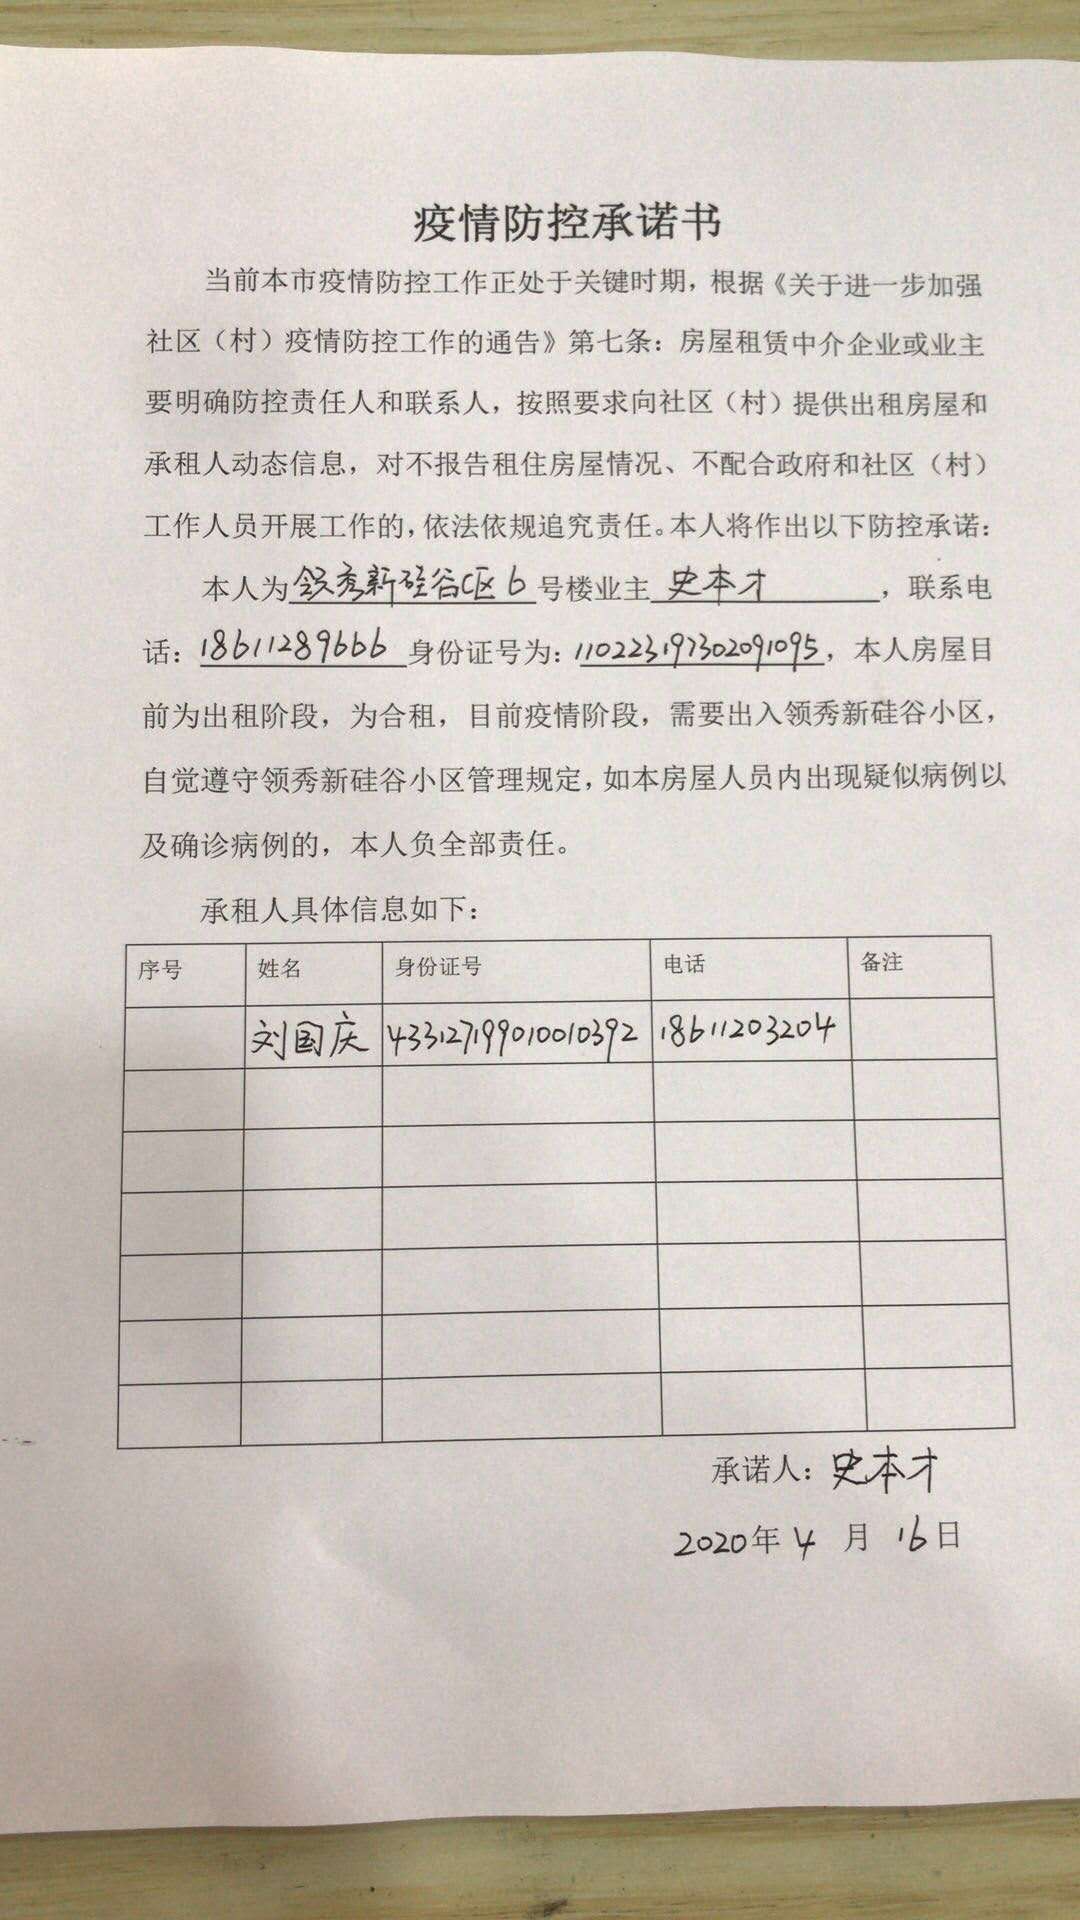 疫情防控承诺书
当前本市疫情防控工作正处于关键时期，根据《关于进一步加强
社区（村）疫情防控工作的通告》第七条：房屋租赁中介企业或业主
要明确防控责任人和联系人，按照要求向社区（村）提供出租房屋和
承租人动态信息，对不报告租住房屋情况、不配合政府和社区（村）
工作人员开展工作的，依法依规追究责任。本人将作出以下防控承诺：
本人为领秀新硅谷C区6号楼业主 史本才 ，联系电
话：18611289666 身份证号为：110223197302091095，本人房屋目
前为出租阶段，为合租，目前疫情阶段，需要出入领秀新硅谷小区，
自觉遵守领秀新硅谷小区管理规定，如本房屋人员内出现疑似病例以
及确诊病例的，本人负全部责任。
承租人具体信息如下：
序号 姓名 身份证号 电话 备注
刘国庆 433127199010010392 18611203204
承诺人：史本才
2020年 4 月 16日